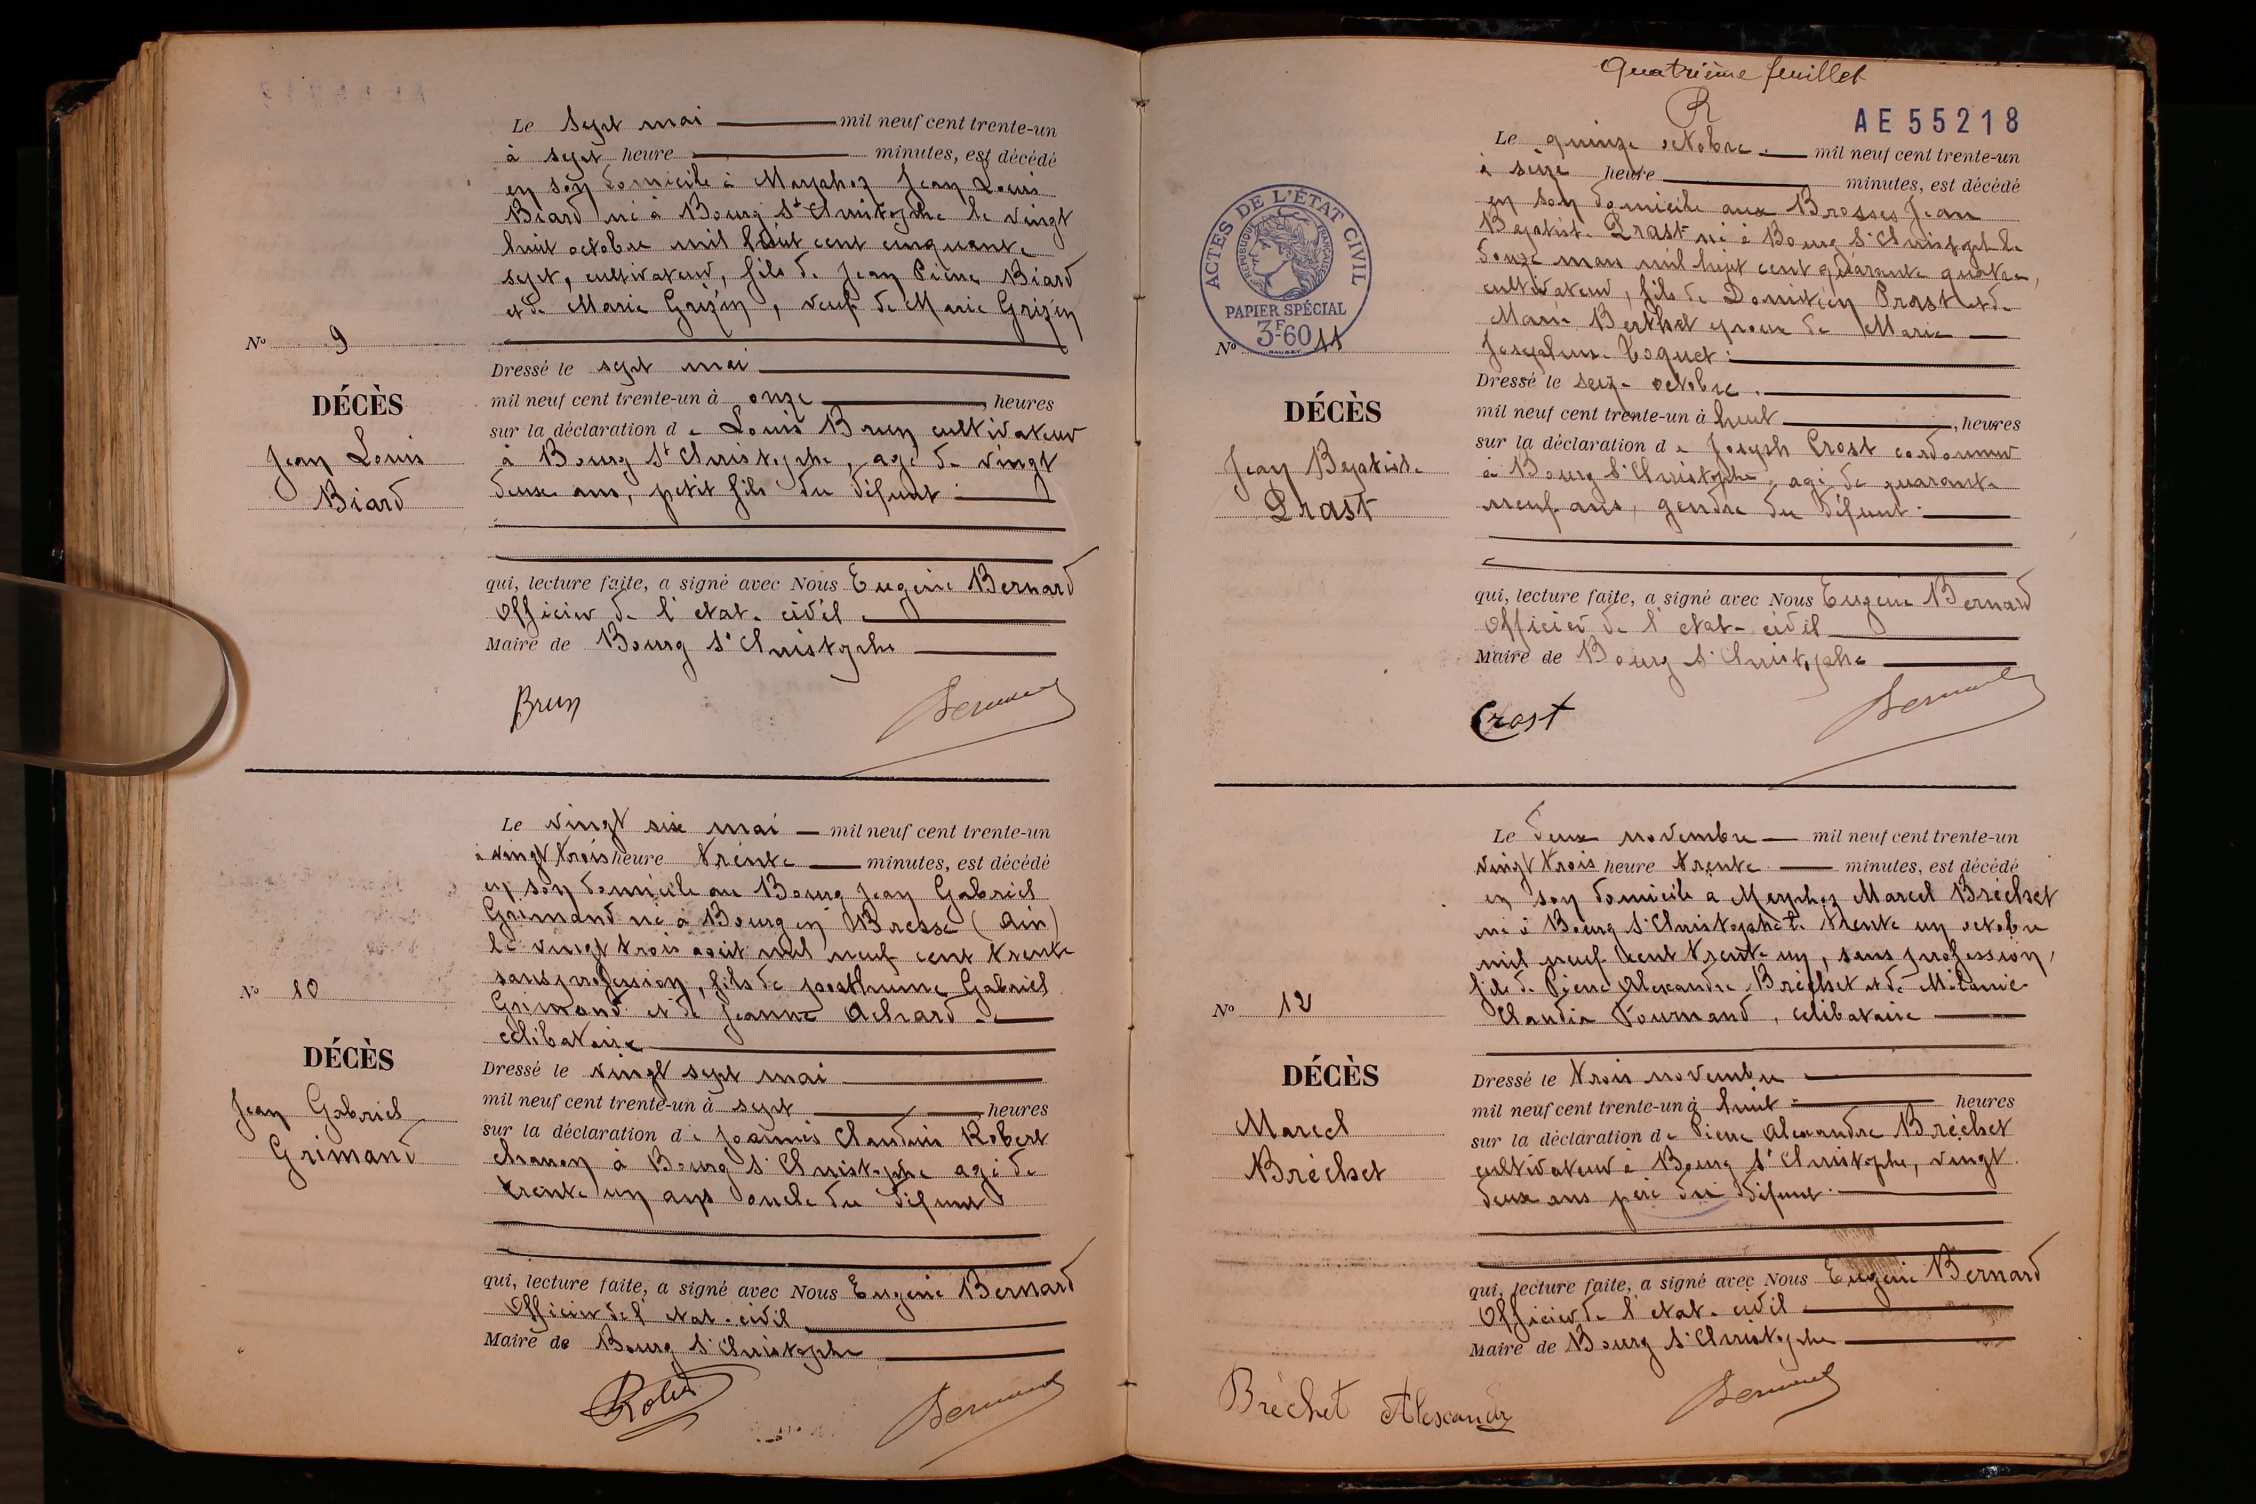 Le sept mai mil neuf cent trente-un
à sept heure minutes, est décédé
en son domicile à Marphoz Jean Louis
Biard né à Bourg St Christophe le vingt
huit octobre mil huit cent cinquante
sept, cultivateur, fils de Jean Pierre Biard
et de Marie Grizin, veuf de Marie Grizin
No 9
DÉCÈS
Jean Louis
Biard
Dressé le sept mai
mil neuf cent trente-un à onze, heures
sur la déclaration de Louis Brun cultivateur
à Bourg St Christophe, age de vingt
deux ans, petit fils du défunt
qui, lecture faite, a signé avec Nous Eugène Bernard
Officier de l'etat-civil
Maire de Bourg St Christophe
Brun
Bernard
Le vingt six mai mil neuf cent trente-un
à vingt trois heure trente minutes, est décédé
en son domicile au Bourg Jean Gabriel
Grimand né à Bourg en Bresse (Ain)
le vingt trois août mil neuf cent trente
sans profession, fils de posthume Gabriel
Grimand et de Jeanne Achard
célibataire
No 10
DÉCÈS
Jean Gabriel
Grimand
Dressé le vingt sept mai
mil neuf cent trente-un à sept, heures
sur la déclaration de Joannès Claudius Robert
à Bourg St Christophe agé de
trente un ans oncle du défunt
qui, lecture faite, a signé avec Nous Eugène Bernard
Officier de l'etat-civil
Maire de Bourg St Christophe
Robert
Bernard
Quatrième feuillet
R
AE 55218
ACTES DE L'ÉTAT CIVIL
REPUBLIQUE FRANÇAISE
PAPIER SPÉCIAL
3F60
Le quinze octobre mil neuf cent trente-un
à seize heure minutes, est décédé
en son domicile aux Brosses Jean
Baptiste Prast né à Bourg St Christophe le
douze mars mil huit cent quarante quatre,
cultivateur, fils de Domitien Prast et de
Marie Berthet epoux de Marie
Josephine Coquet
No 11
DÉCÈS
Jean Baptiste
Prast
Dressé le seize octobre
mil neuf cent trente-un à huit, heures
sur la déclaration de Joseph Crost cordonnier
à Bourg St Christophe, agé de quarante
neuf ans, gendre du défunt
qui, lecture faite, a signé avec Nous Eugène Bernard
Officier de l'etat-civil
Maire de Bourg St Christophe
Crost
Bernard
Le deux novembre mil neuf cent trente-un
vingt trois heure trente minutes, est décédé
en son domicile a Marphoz Marcel Bréchet
né à Bourg St Christophe le trente un octobre
mil neuf cent trente un, sans profession,
fils de Pierre Alexandre Bréchet et de Mélanie
Claudia Tournand, célibataire
No 12
DÉCÈS
Marcel
Bréchet
Dressé le trois novembre
mil neuf cent trente-un à huit heures
sur la déclaration de Pierre Alexandre Bréchet
cultivateur à Bourg St Christophe, vingt
deux ans père du défunt
qui, lecture faite, a signé avec Nous Eugène Bernard
Officier de l'etat-civil
Maire de Bourg St Christophe
Bréchet Alexandre
Bernard